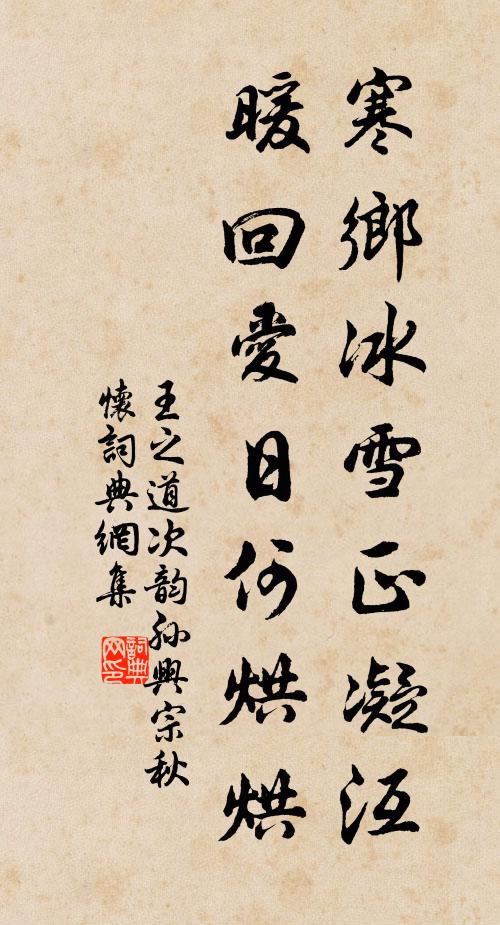 寒鄉冰雪正凝沍
暖回愛日何烘烘
王之道次韵孙興宗秋
懷詞典網集
詞典
网印